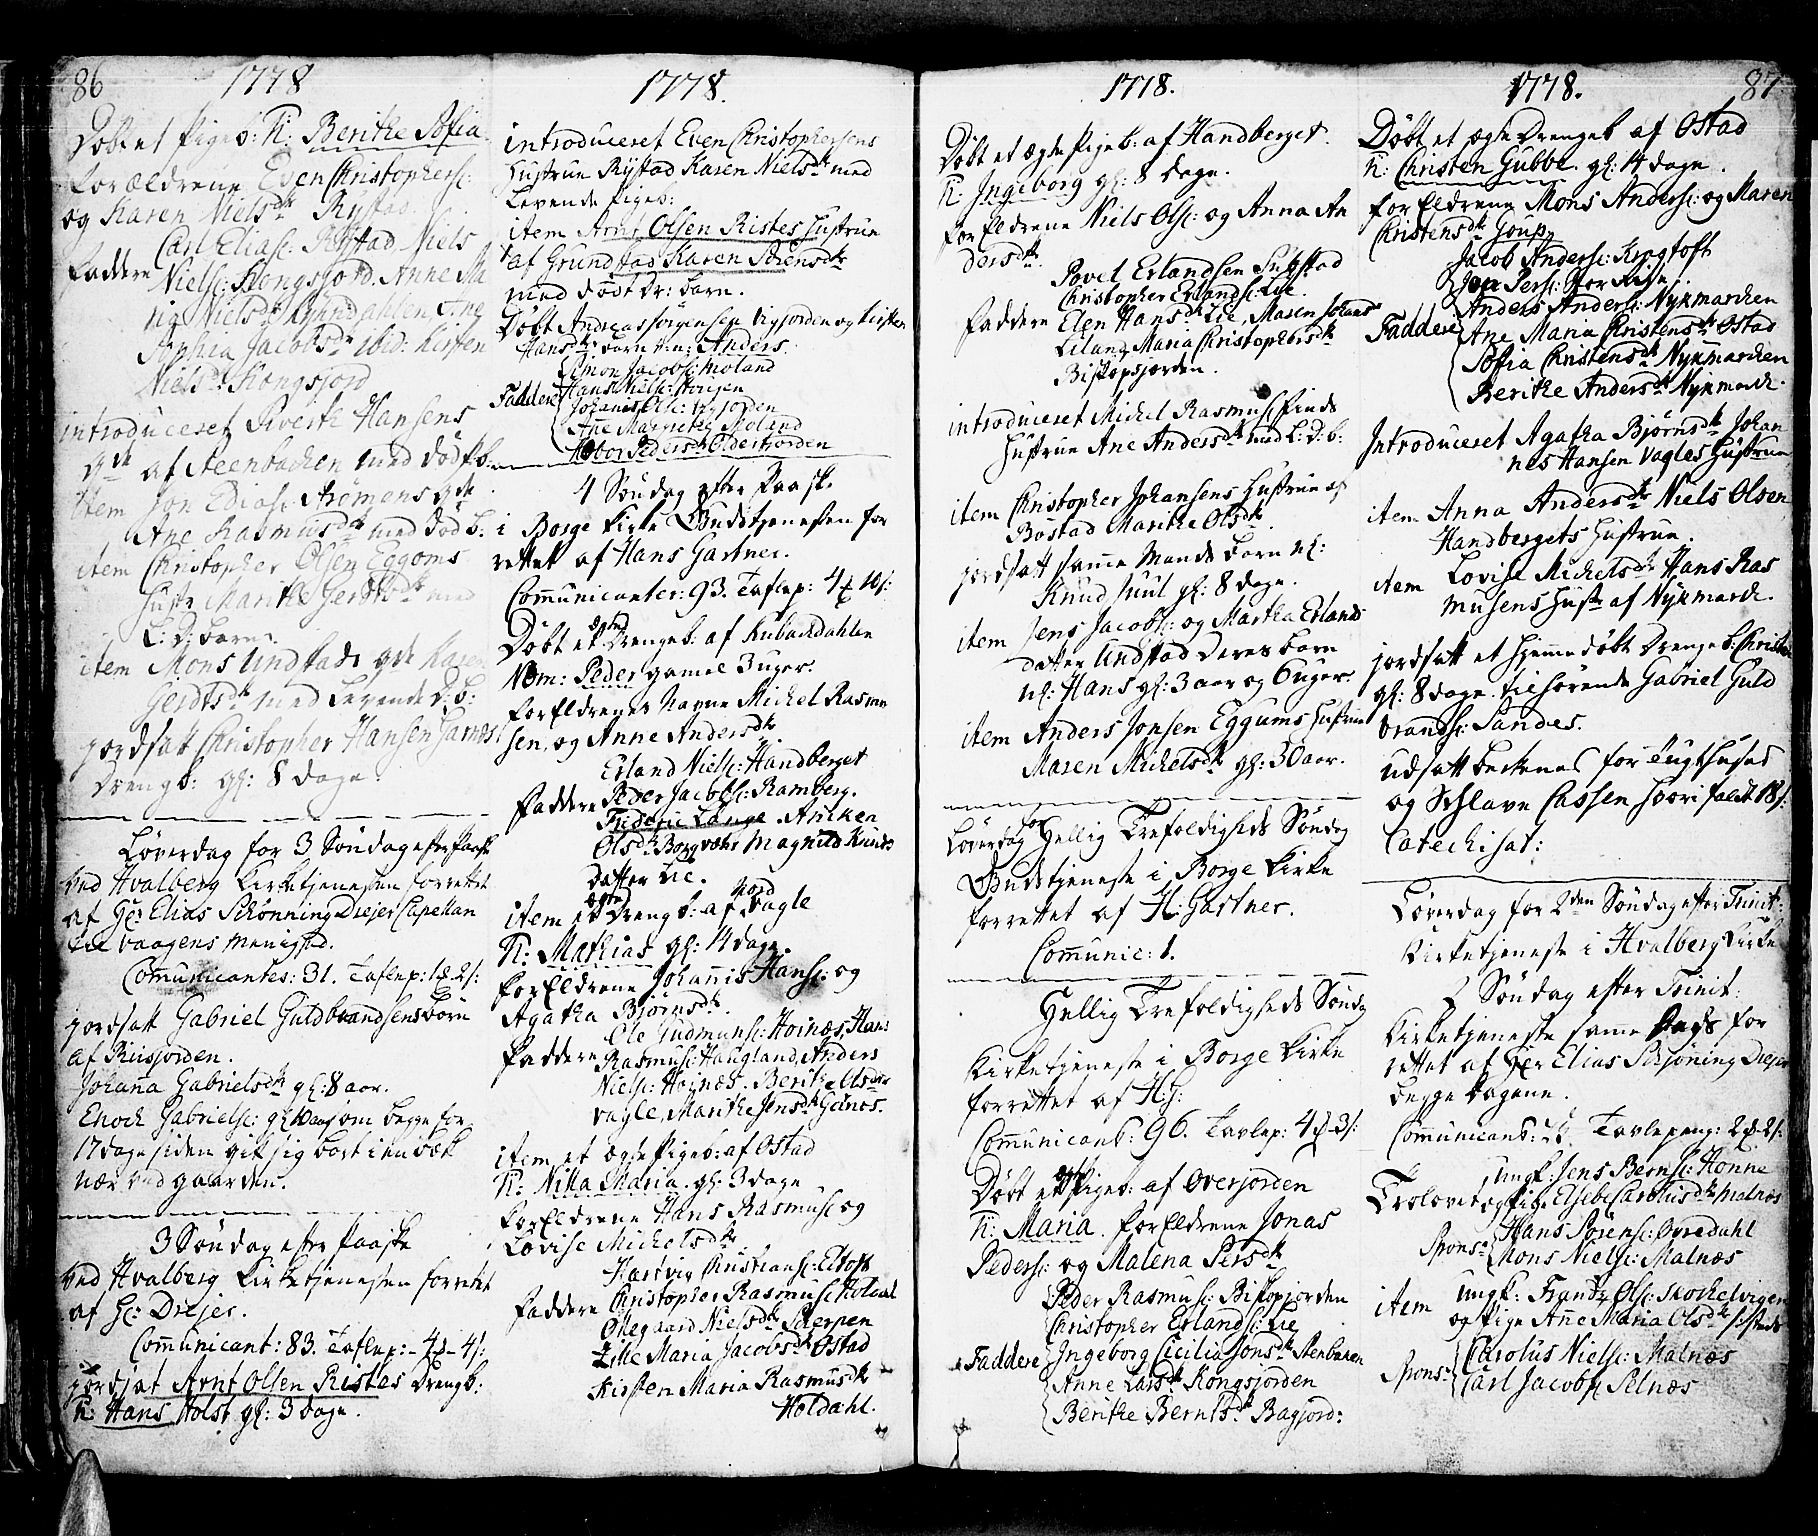 86 1778
Døbt et Pigeb: N: Beritke Sofia
forældrene Even Christophers:
og Karen Nielsdtr Rystad
Carl Elias: Rystad Niels
Faddere Niels: Kongsjord. Anne Ma
ria Nielsdtr ibid: Ane
Sophia Jacobsdtr ibid: Kirsten
Nielsdtr Kongsjord
introduceret Sivert Hansens
qde af Steenbacken med dødf b.
Item Jon Ediass: Strømens qde
Ane Rasmusdtr med død b:
item Christopher Olsen Eggoms
Hustr Maritke Gerdtsdtr med
L: D: barn.
item Mons Undstads qde Karen
Gerdtsdtr med Levende D: B:
jordsatt Christopher Hansen
Drengb: gl: 8 dage.
Løverdag for 3 Søndag efter Paaske
ved Hvalberg Kirketjenesten forrettet
af Hr Elias Schønning Drejer Capellan
til Vaagens Menighed.
Comunicantes: 31. Taflep: 1 2 s:
jordsatt Gabriel Guldbrandsens børn
af Riisjorden.
Johana Gabrielsdtr gl: 8 aar.
Enoch Gabriels: gl som begge for
17 dage siden gik sig bort i en bæk
nær ved gaarden.
3 Søndag efter Paaske
ved Hvalberg Kirketjenesten forrettet
af Hr: Drejer.
Communicant: 83. Taflep: - 4 - 4 s:
jordsat Arnt Olsen Ristes Drengb:
N: Hans Holst gl: 3 dage.
1778.
introduceret Even Christophersens
Hustrue Rystad Karen Nielsdtr med
Levende Pigeb:
item Arnt Olsen Ristes Hustrue
af Grundstad Karen Steensdtr
med død Dr: barn.
Døbt Andreas Jørgensen Vigjorden og Kirsten
Hansdtr: barn N: Anders.
Simon Jacobs: Moland
Faddere Hans Niels: Hougen
Johanes Ols: Vigjorden
Ane Margrethe Moland
Hobor Pedersdtr Olderfjorden
4 Søndag efter Paaske
i Borge Kirke Gudstjenesten for
rettet af Hans Gartner.
Communicanter: 93. Taflep: 4 10 s:
Døbt et ægte Drengeb: af Kubackdahlen
Nom: Peder gamel 3 uger.
Forældrenes Navne Michel Rasmu
sen, og Anne Andersdtr
Erland Niels: Handberget
Faddere Peder Jacobs: Ramberg.
Frideric Lange Aneken
Olsdtr Borgvær Magnild Knuds
datter Lie.
item et ægte Drengb: af Nord Vagle
N: Mathias gl: 14 dage.
forældrene Johannis Hans: og
Agatha Bjørnsdtr.
Ole Gudmuns: Hoinæs, Hans
Faddere Rasmus: Haugland, Anders
Niels: Hoinæs. Beritke Olsdtr
Vagle, Maritke Jensdtr Gelnes.
item et ægte Pigeb: af Ostad
N: Nilla Maria. gl: 3 dage
forældrene Hans Rasmus: og
Lovise Michelsdtr.
Hartvig Christians: Eltoft
Faddere Christopher Rasmus: Holdal
Ollegaard Nielsdtr Scherpen
Zille Maria Jacobsdtr Ostad
Kirsten Maria Rasmusdtr
Holdahl.
1778.
Døbt et ægte Pigeb: af Handberget.
N: Ingeborg gl: 8 dage.
forældrene Niels Ols: og Anna An
dersdtr.
Povel Erlandsen Sukstad
Christopher Erlands: Lie.
Faddere Elen Hansdtr Lie, Maren Johans
Leland, Maria Christophersdtr
Biskopsjorden.
introduceret Michel Rasmus: Finds
Hustrue Ane Andersdtr med L: D: b:
item Christopher Johansens Hustrue af
Bostad Maritke Olsdtr.
jordsatt samme Mands barn N:
Knud Juul gl: 8 dage.
item Jens Jacobs: og Martha Erlands
datter Undstad deres barn
N: Hans gl: 3 aar og 6 uger.
item Anders Jonsen Eggums Hustrue
Maren Michelsdtr gl: 30 aar.
Løverdag for Hellig Trefoldigheds Søndag
Gudstjeneste i Borge Kirke
forrettet af H: Gartner.
Communic: 1.
Hellig Trefoldigheds Søndg
Kirketjeneste i Borge Kirke
forrettet af H: G:
Communicant: 96. Tavlep: 4 3 s:
Døbt et ægte Pigeb: af Overjorden
N: Maria. forældrene Jonas
Peders: og Malena Persdtr
Peder Rasmus: Biskopjorden
Christopher Erlands: Lie
Faddere Ingeborg Cicilia Jonsdtr Stenbaken
Anne Larsdtr Kongsjorden
Beritke Berntsdtr Bagjord:
1778. 87
Døbt et ægte Drengeb af Ostad
N: Christen Gubbe. gl: 14 dage.
forældrene Mons Anders: og Maren
Christensdtr Goup
Jacob Anders: Krogtoft
Jon Pers: Stor Riise.
Anders Anders: Nykmarcken
Faddere Ane Maria Christensdtr Ostad
Sofia Christensdtr Nykmarcken
Beritke Andersdtr Nykmark.
Introduceret Agatha Bjørnsdtr Johan
nes Hansen Vagles Hustrue
item Anna Andersdtr Niels Olsen
Handbergets Hustrue.
item Lovise Michelsdtr Hans Ras
musens Hustr af Nykmark.
jordsatt et hjemmedøbt Drengeb: Christen
gl: 8 dage. tilhørende Gabriel Guld
brands: Sandes.
udsatt beckenes for Tugthuset
og Schlave Cassen hvori faldt 18 s.
Catechisat:
Løverdag for 2den Søndag efter Trinit:
Kirketjeneste i Hvalberg Kirke
2 Søndag efter Trinit:
Kirketjeneste same Dags for
rettet af Hr Elias Schjøning Drejer
begge Dagene.
Communicant: Tavlepeng: 2 2 s:
Ungk: Jens Berns: Honne
Trolovet og Pige Elsebe Carolusdtr Malnæs
Spons: Hans Sørens: Øyredahl
Mons Niels: Malnæs
item Ungk: Frandz Ols: Skockelvigen
og Pige Anne Maria Olsdtr sisteds
Spons: Carolus Niels: Malnæs
Carl Jacobs: Selnæs